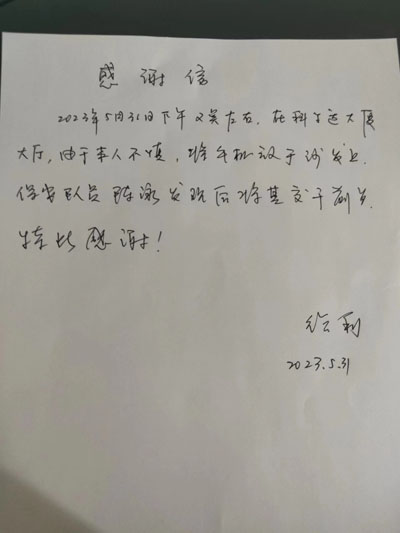 感谢信
2023年5月31日下午2点左右，在科兴大厦
大厅，由于本人不慎，将手机放于沙发上，
保安队员陈发现后将其交于前台
特此感谢！
2023.5.31